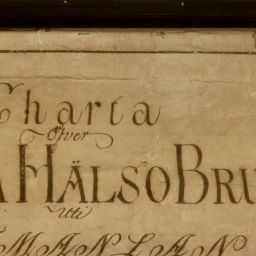 Charta
Öfver
A HÄLSOBRU
Uti
MANLAN